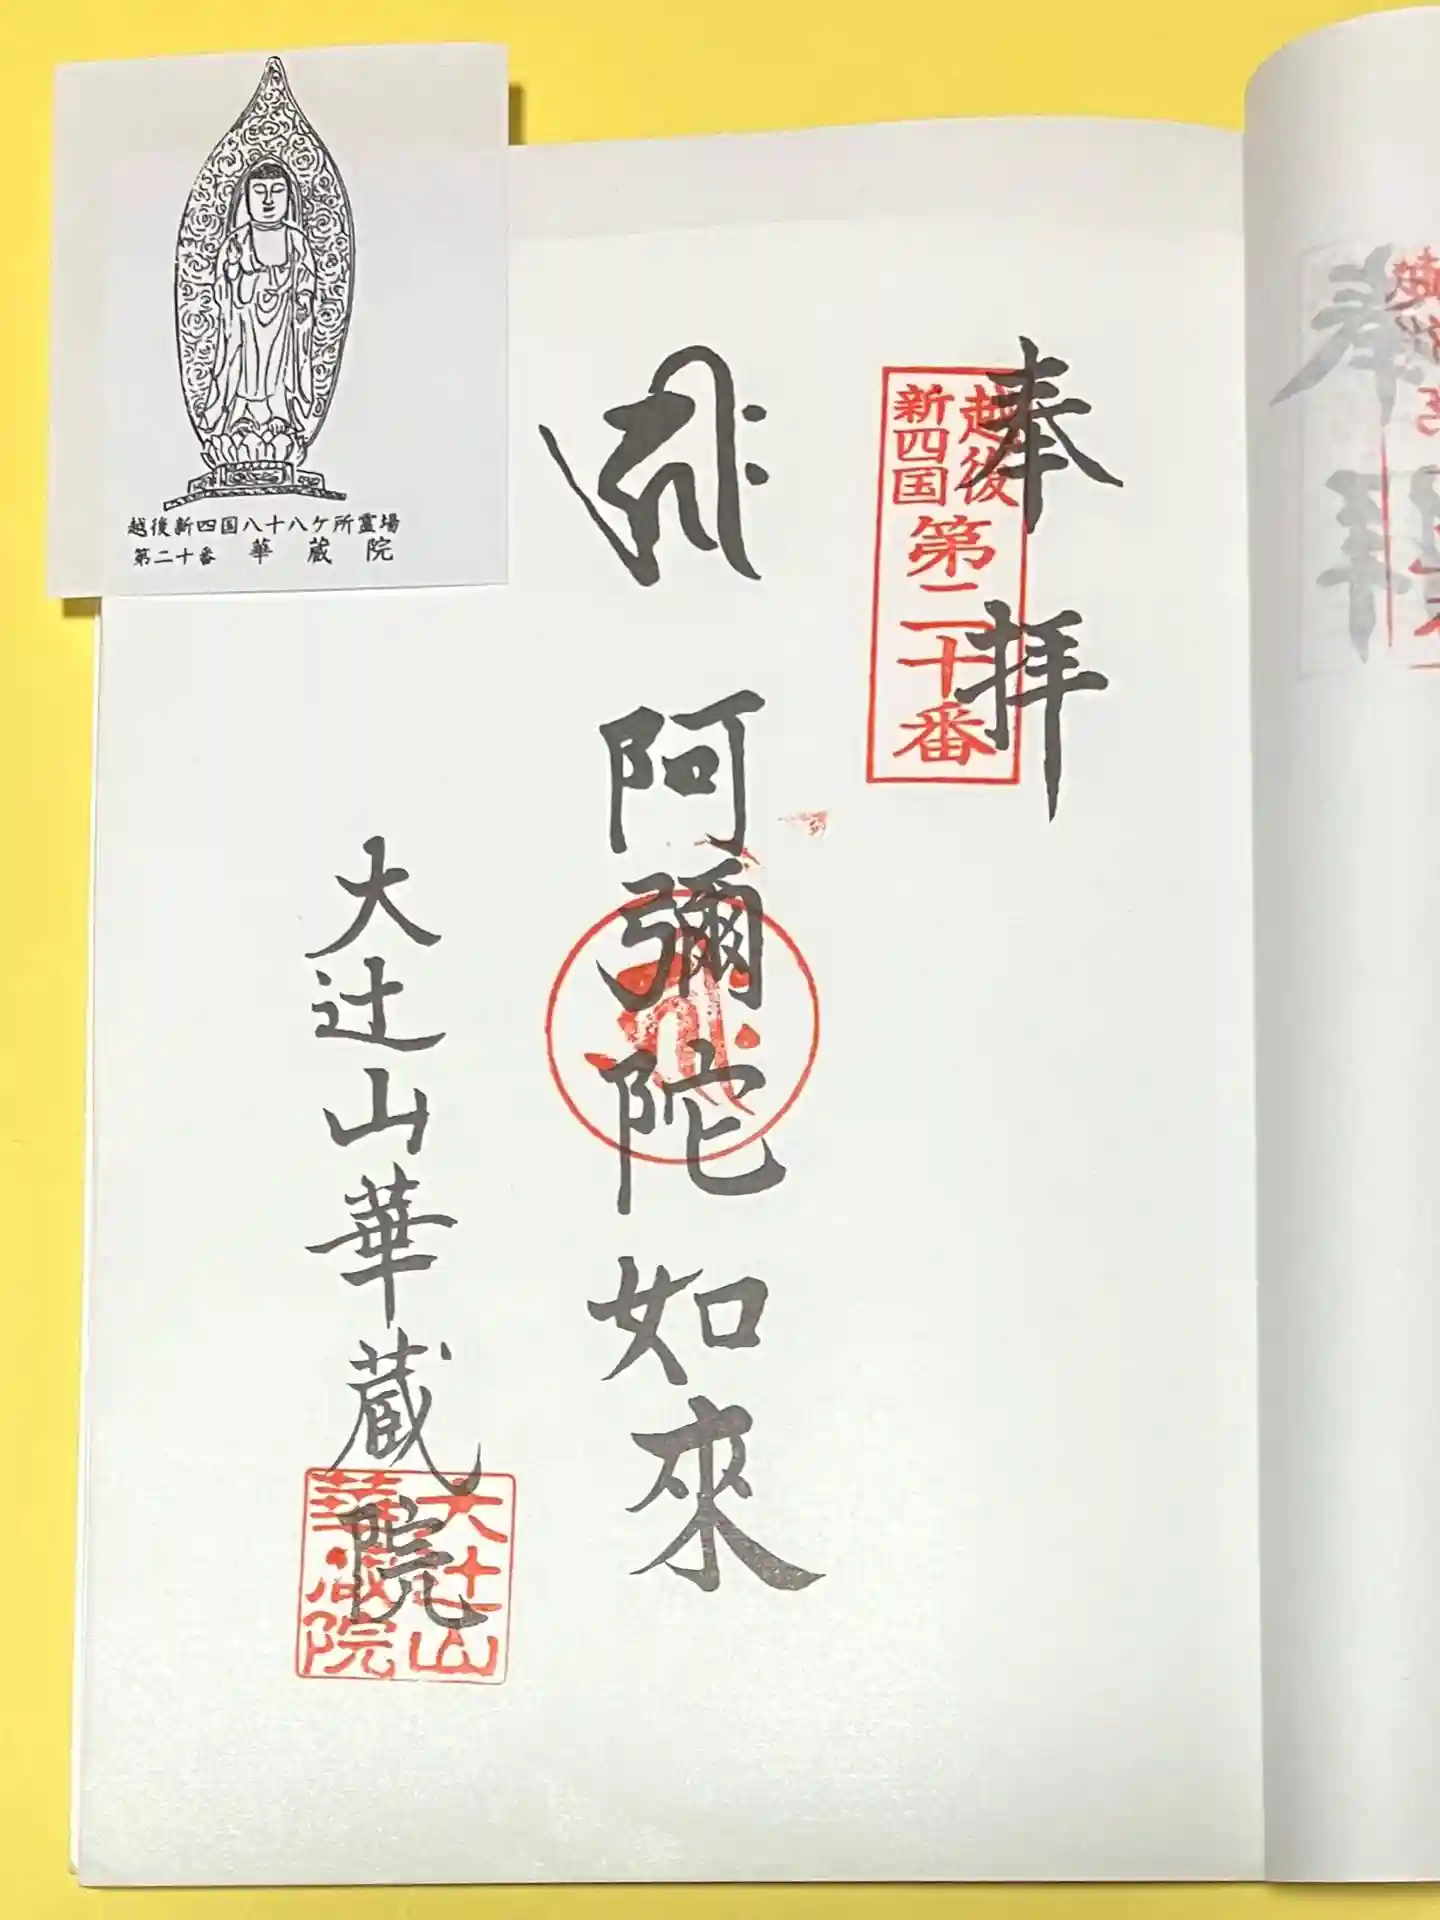 越後新四国八十八ケ所霊場
第二十番 華蔵院
奉拝
越後
新四国
第二十番
𑖮𑖿𑖨𑖱𑖾
阿彌陀如來
大辻山華蔵院
大辻山
華蔵院
奉拝